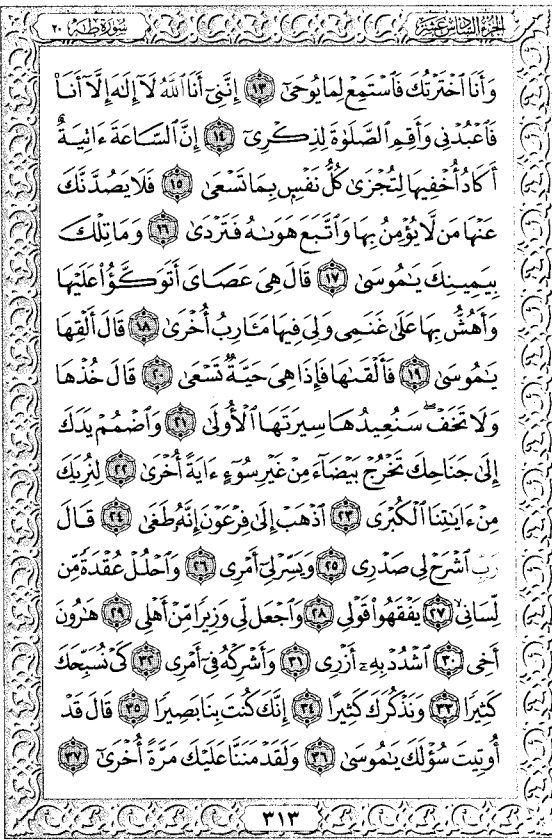 الجزء السادس عشر سورة طه ٢٠
وَأَنَا ٱخْتَرْتُكَ فَٱسْتَمِعْ لِمَا يُوحَىٰٓ ١٣ إِنَّنِىٓ أَنَا ٱللَّهُ لَآ إِلَٰهَ إِلَّآ أَنَا۠
فَٱعْبُدْنِى وَأَقِمِ ٱلصَّلَوٰةَ لِذِكْرِىٓ ١٤ إِنَّ ٱلسَّاعَةَ ءَاتِيَةٌ
أَكَادُ أُخْفِيهَا لِتُجْزَىٰ كُلُّ نَفْسٍۭ بِمَا تَسْعَىٰ ١٥ فَلَا يَصُدَّنَّكَ
عَنْهَا مَن لَّا يُؤْمِنُ بِهَا وَٱتَّبَعَ هَوَىٰهُ فَتَرْدَىٰ ١٦ وَمَا تِلْكَ
بِيَمِينِكَ يَٰمُوسَىٰ ١٧ قَالَ هِىَ عَصَاىَ أَتَوَكَّؤُا۟ عَلَيْهَا
وَأَهُشُّ بِهَا عَلَىٰ غَنَمِى وَلِىَ فِيهَا مَـَٔارِبُ أُخْرَىٰ ١٨ قَالَ أَلْقِهَا
يَٰمُوسَىٰ ١٩ فَأَلْقَىٰهَا فَإِذَا هِىَ حَيَّةٌ تَسْعَىٰ ٢٠ قَالَ خُذْهَا
وَلَا تَخَفْ ۖ سَنُعِيدُهَا سِيرَتَهَا ٱلْأُولَىٰ ٢١ وَٱضْمُمْ يَدَكَ
إِلَىٰ جَنَاحِكَ تَخْرُجْ بَيْضَآءَ مِنْ غَيْرِ سُوٓءٍ ءَايَةً أُخْرَىٰ ٢٢ لِنُرِيَكَ
مِنْ ءَايَٰتِنَا ٱلْكُبْرَى ٢٣ ٱذْهَبْ إِلَىٰ فِرْعَوْنَ إِنَّهُۥ طَغَىٰ ٢٤ قَالَ
رَبِّ ٱشْرَحْ لِى صَدْرِى ٢٥ وَيَسِّرْ لِىٓ أَمْرِى ٢٦ وَٱحْلُلْ عُقْدَةً مِّن
لِّسَانِى ٢٧ يَفْقَهُوا۟ قَوْلِى ٢٨ وَٱجْعَل لِّى وَزِيرًا مِّنْ أَهْلِى ٢٩ هَٰرُونَ
أَخِى ٣٠ ٱشْدُدْ بِهِۦٓ أَزْرِى ٣١ وَأَشْرِكْهُ فِىٓ أَمْرِى ٣٢ كَىْ نُسَبِّحَكَ
كَثِيرًا ٣٣ وَنَذْكُرَكَ كَثِيرًا ٣٤ إِنَّكَ كُنتَ بِنَا بَصِيرًا ٣٥ قَالَ قَدْ
أُوتِيتَ سُؤْلَكَ يَٰمُوسَىٰ ٣٦ وَلَقَدْ مَنَنَّا عَلَيْكَ مَرَّةً أُخْرَىٰٓ ٣٧
٣١٣